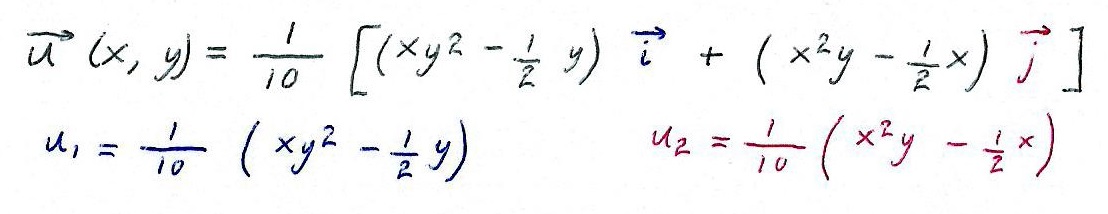 u⃗ (x, y) = 1/10 [(xy² - 1/2 y) i⃗ + (x²y - 1/2 x) j⃗ ]
u₁ = 1/10 (xy² - 1/2 y) u₂ = 1/10 (x²y - 1/2 x)